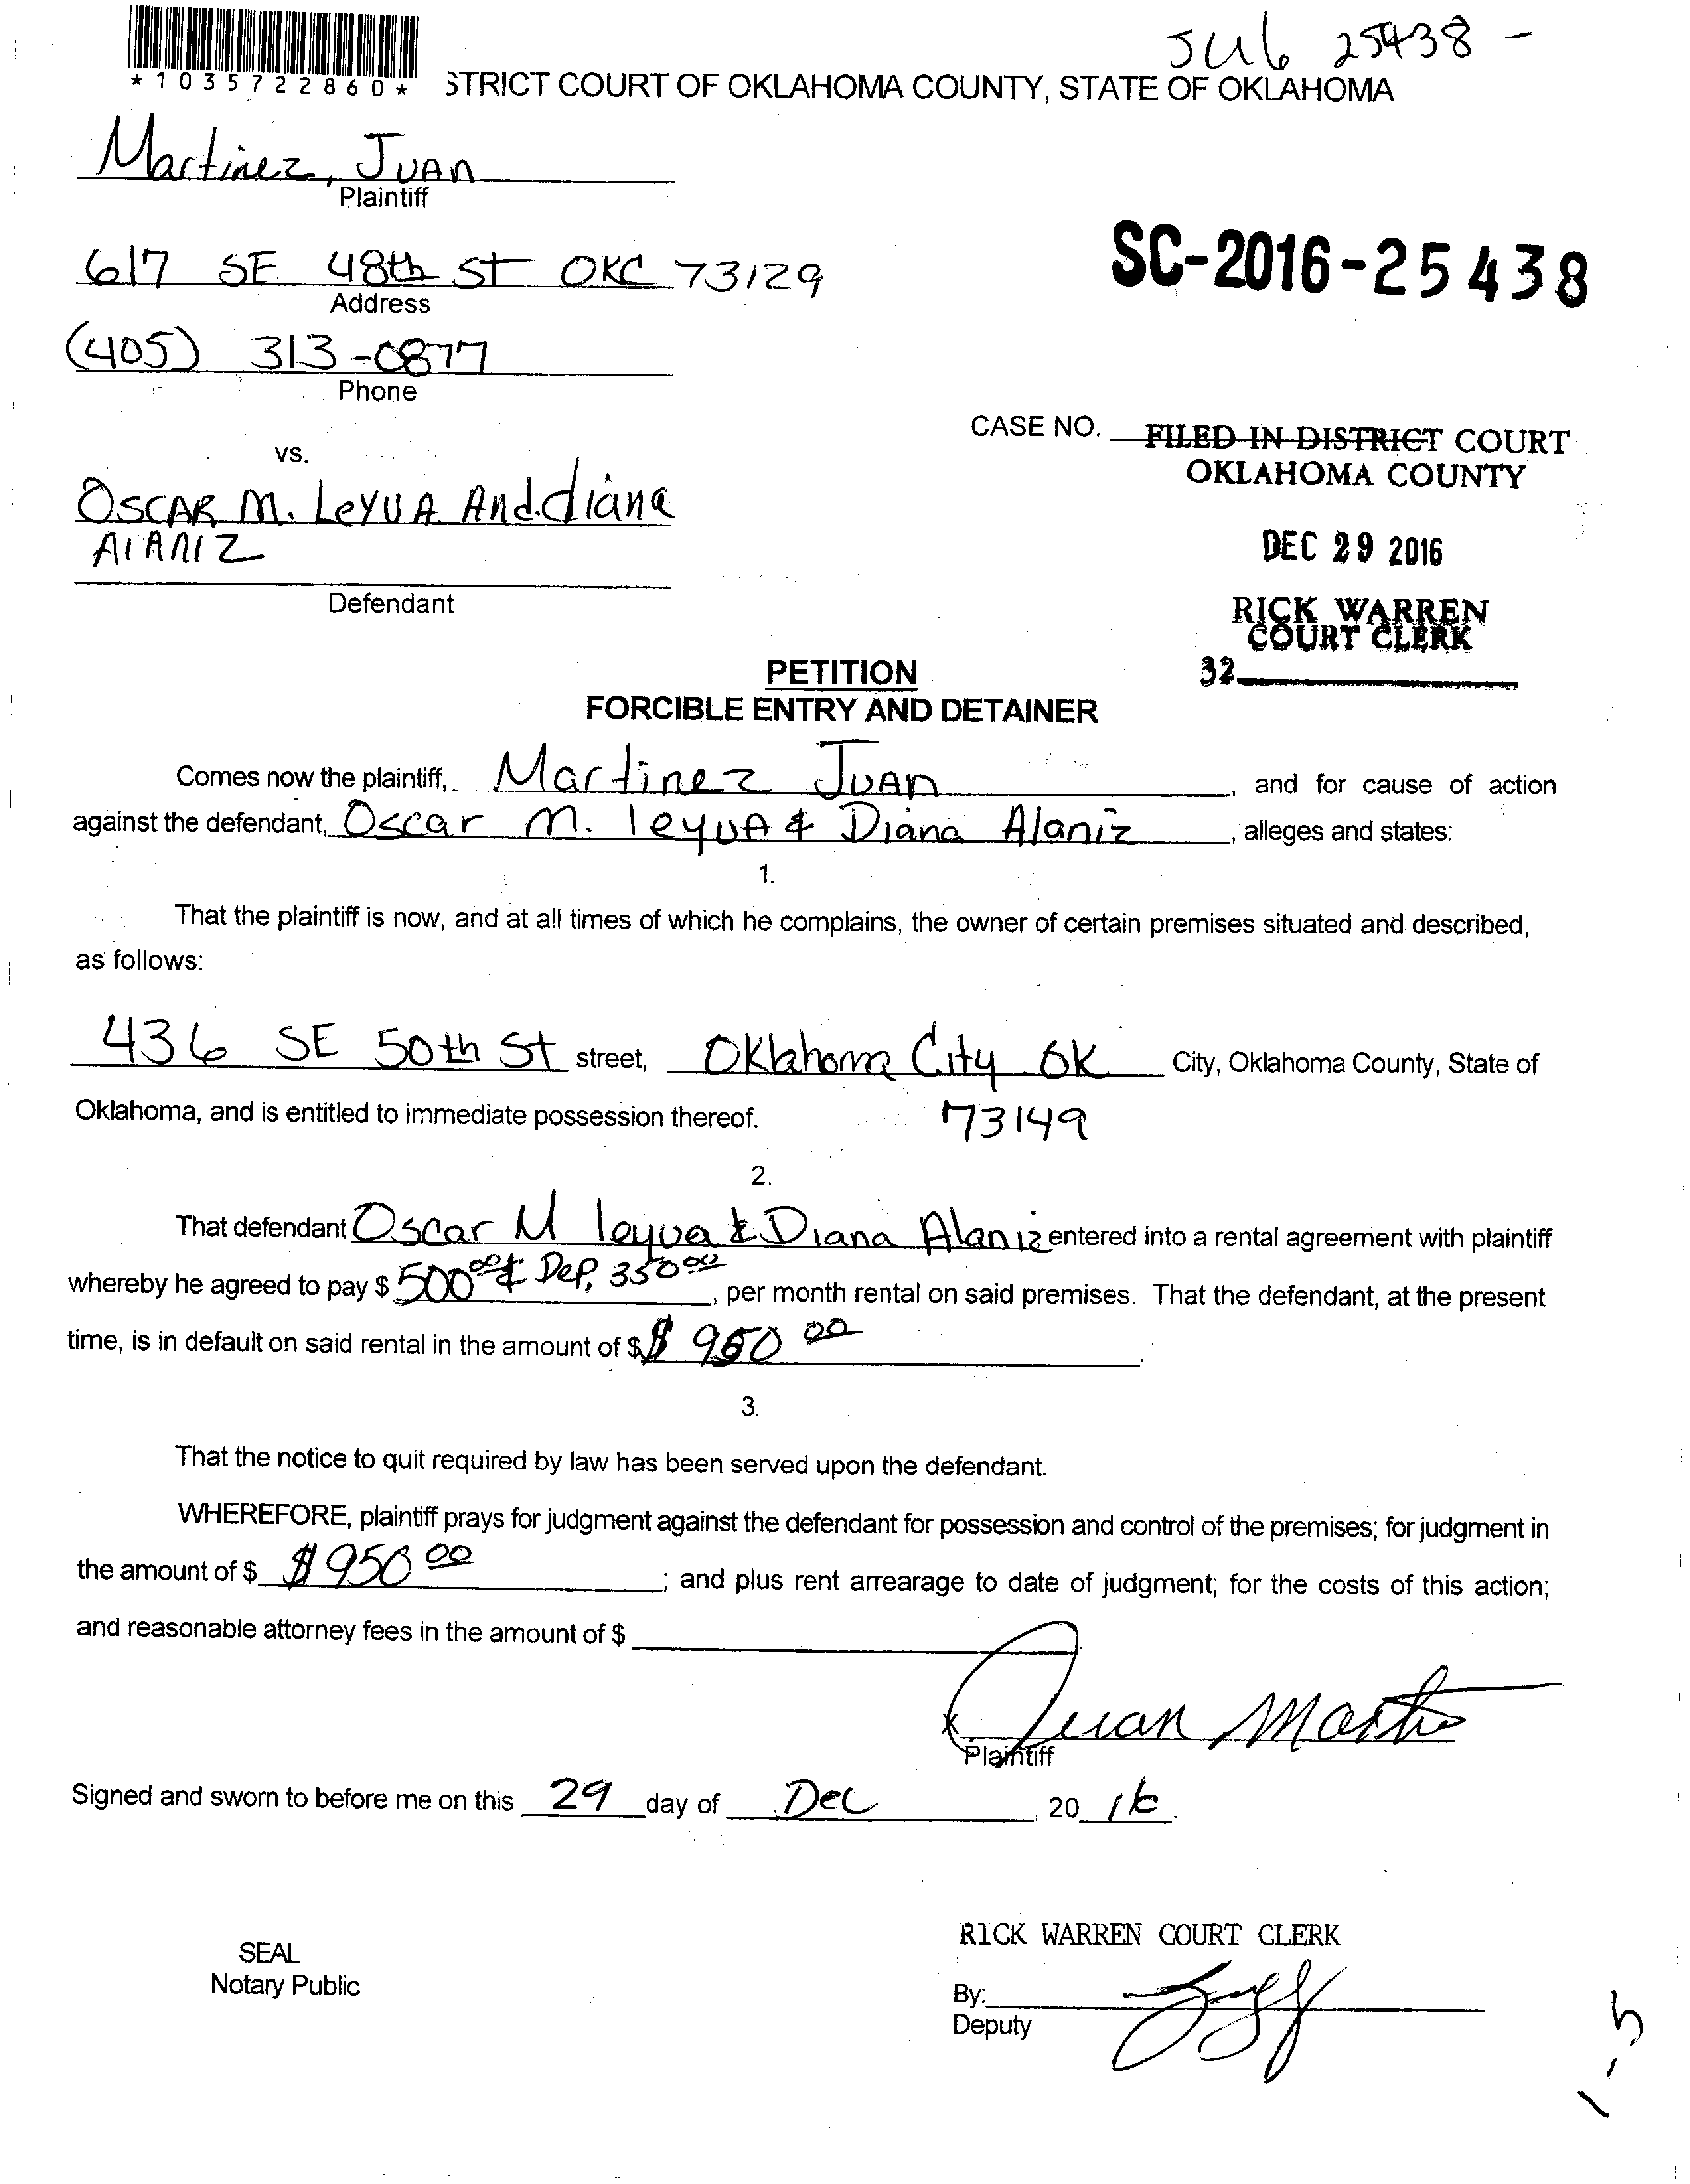 JU6 25438 -
*1035722860* STRICT COURT OF OKLAHOMA COUNTY, STATE OF OKLAHOMA
Martinez, JUAn
Plaintiff
617 SE 48th ST OKC 73129
Address
SC-2016-25438
(405) 313-0877
Phone
CASE NO. FILED IN DISTRICT COURT
OKLAHOMA COUNTY
vs.
OSCAR M. LeYUA And diana
AlANIZ
DEC 29 2016
Defendant
RICK WARREN
COURT CLERK
32
PETITION
FORCIBLE ENTRY AND DETAINER
Comes now the plaintiff, Martinez JUAn, and for cause of action
against the defendant, Oscar M. leyuA & Diana Alaniz, alleges and states:
1.
That the plaintiff is now, and at all times of which he complains, the owner of certain premises situated and described,
as follows:
436 SE 50th St street, Oklahoma City OK City, Oklahoma County, State of
Oklahoma, and is entitled to immediate possession thereof. 73149
2.
That defendant Oscar M leyva & Diana Alaniz entered into a rental agreement with plaintiff
whereby he agreed to pay $ 500 00 & Dep, 350 00, per month rental on said premises. That the defendant, at the present
time, is in default on said rental in the amount of $ $ 950 00.
3.
That the notice to quit required by law has been served upon the defendant.
WHEREFORE, plaintiff prays for judgment against the defendant for possession and control of the premises; for judgment in
the amount of $ $ 950 00; and plus rent arrearage to date of judgment; for the costs of this action;
and reasonable attorney fees in the amount of $
x Juan Martinez
Plaintiff
Signed and sworn to before me on this 29 day of Dec, 20 16.
RICK WARREN COURT CLERK
SEAL
Notary Public
By:
Deputy
1-5